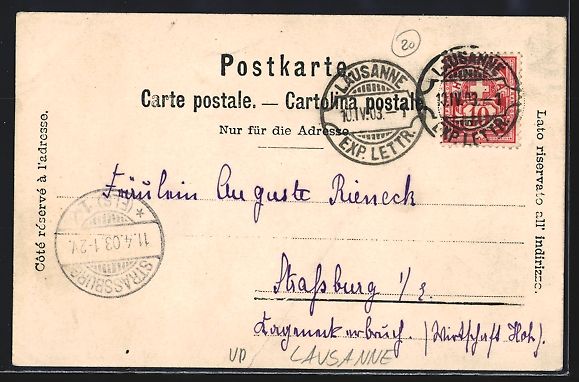 20
Postkarte.
Carte postale. — Cartolina postale.
Nur für die Adresse.
LAUSANNE
10.IV.03.
EXP. LETTR.
LAUSANNE
EXP. LETTR.
Côté réservé à l'adresse.
Lato riservato all' indirizzo.
Fräulein Auguste Rieneck
STRASSBURG
11.4.03.1-2
Straßburg i/E.
(Wirtschaft
LAUSANNE